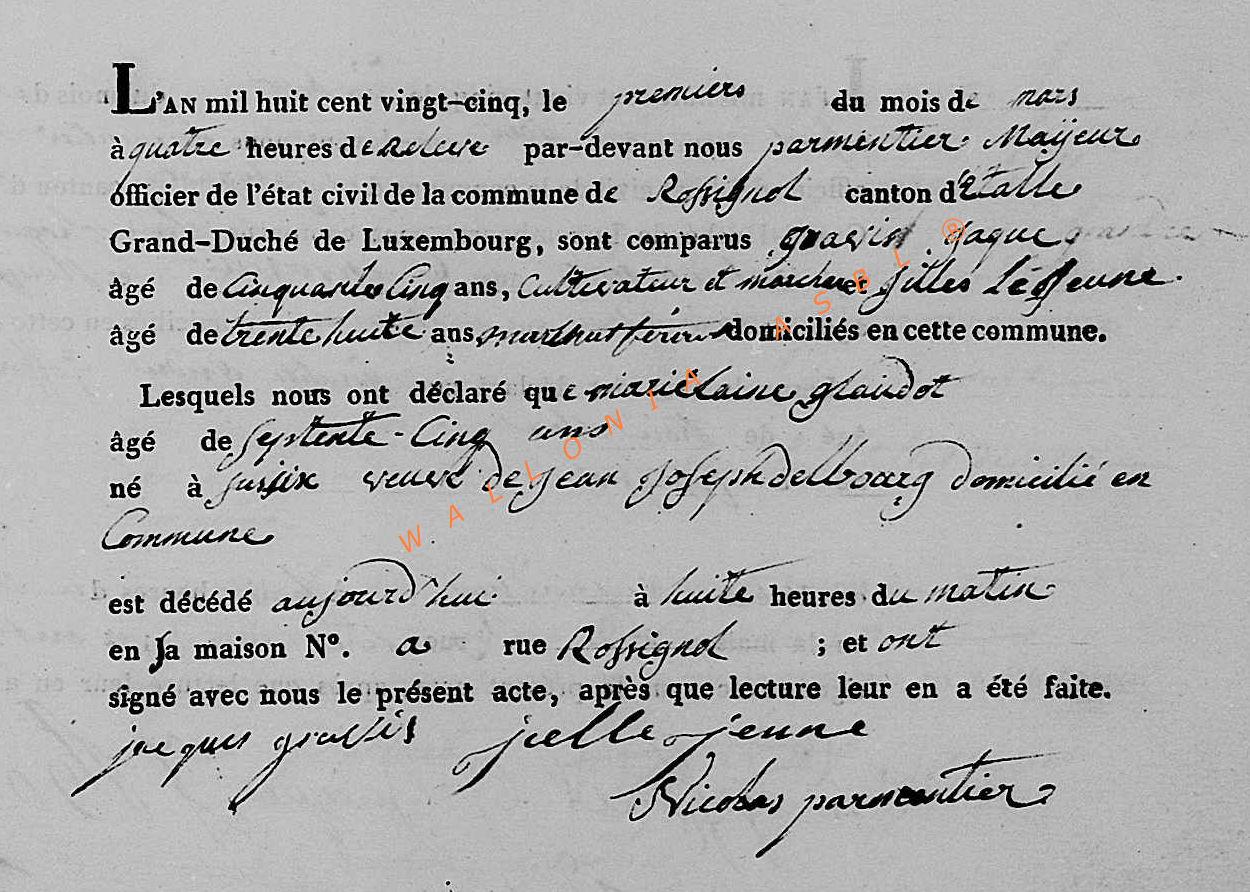 L'AN mil huit cent vingt-cinq, le premiers du mois de mars
à quatre heures de Releve par-devant nous parmentier Maÿeur
officier de l'état civil de la commune de Rossignol canton d'Etalle
Grand-Duché de Luxembourg, sont comparus gravis jaque
âgé de Cinquante Cinq ans, Cultivateur et Gilles LéJeune
âgé de trente huite ans domiciliés en cette commune.
Lesquels nous ont déclaré que marie laine glaudot
âgé de Septente-Cinq ans
né à veuve de jean joseph delbourg domicilié en
Commune
est décédé aujourd'hui à huite heures du matin
en sa maison N°. a rue Rossignol ; et ont
signé avec nous le présent acte, après que lecture leur en a été faite.
jacques gravis jille jeune
Nicolas parmentier
WALLONIA ASBL ®